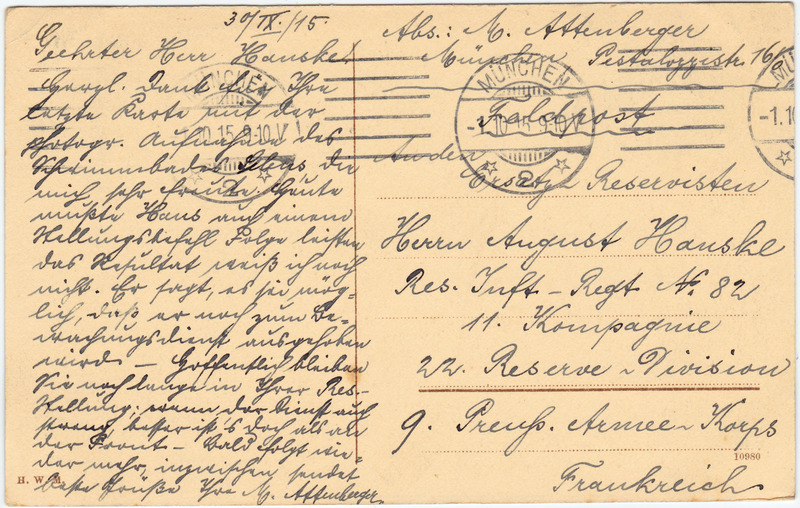 30/IX./15.
Geehrter Herr Hanske.
Herzl. Dank für Ihre
letzte Karte mit der
Photogr. Aufnahme des
Schwimmbades, die
mich sehr freute. Heute
mußte Hans auch einem
Stellungsbefehl Folge leisten,
das Resultat weiß ich noch
nicht. Er sagt, es sei mög-
lich, daß er noch zum Be-
wachungsdienst ausgehoben
wird – Hoffentlich bleiben
Sie noch lange in Ihrer Res.-
Stellung; wenn der Dienst auch
streng, besser ist's doch als an
der Front – Bald folgt wie-
der mehr, inzwischen sendet
beste Grüße Ihre M. Attenberger
H. W. M.
Abs.: M. Attenberger
München Pestalozzistr. 16
Feldpost
An den
Ersatz Reservisten
Herrn August Hanske
Res. Inft-Regt No. 82
11. Kompagnie
22. Reserve-Division
9. Preuß. Armee-Korps
Frankreich
10980
MÜNCHEN
-1.10.15.9-10.V.
2